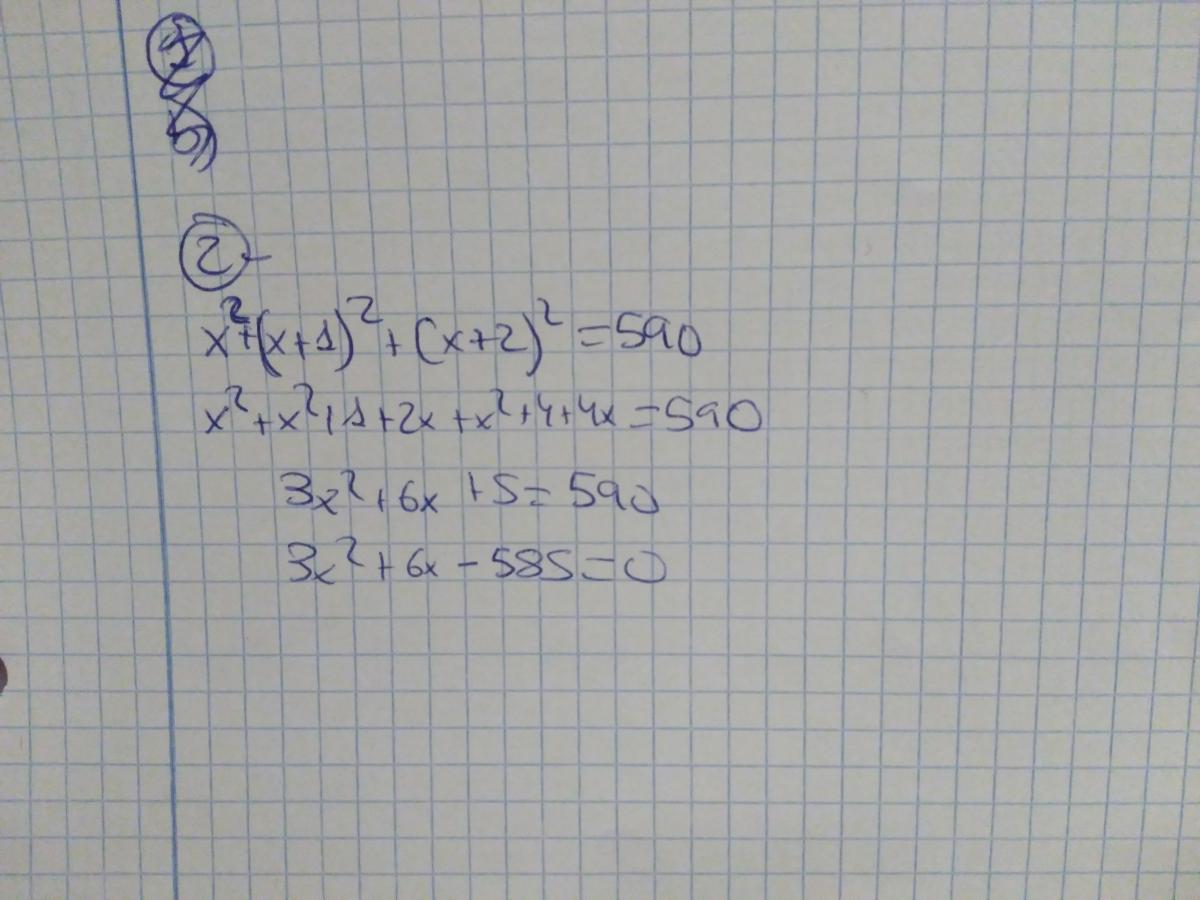 2-
x²+(x+1)²+(x+2)²=590
x²+x²+1+2x+x²+4+4x=590
3x²+6x+5=590
3x²+6x-585=0